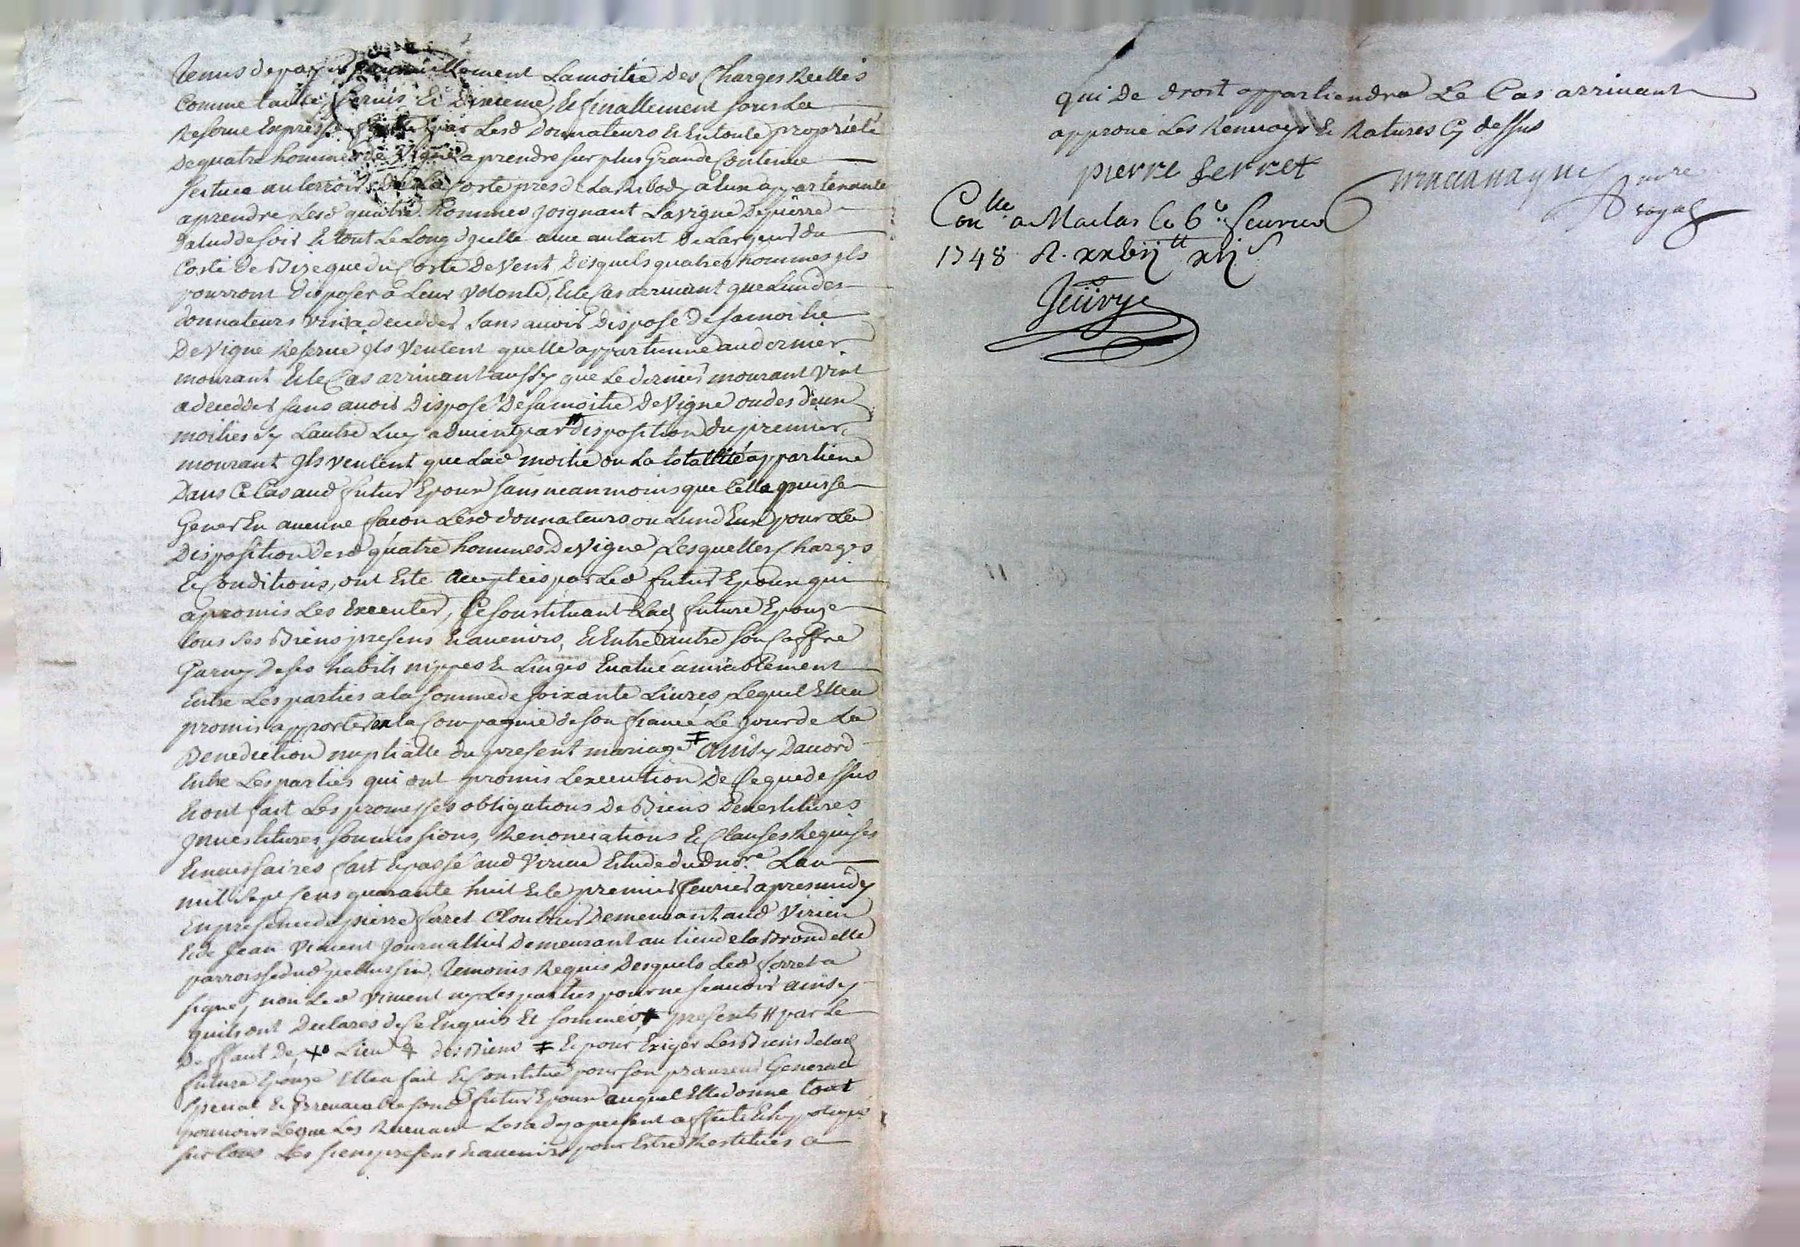 Tenus de payer annuellement Lamoitié Des Charges Reelles
Comme taille Servis Et Dixieme, Et finallement sous La
Reserve Expresse faitte par Lesd Donnateurs Et En toute propriété
De quatre hommes de Vigne a prendre sur plus Grande Contenue
scituée au terroir de La Coste pres de La Ribody a lun appartenante
a prendre Lesd quatre hommes joignant La vigne de pierre
de soir Et tout Le Long dycelle avec autant De Largeur du
Costé De Bize que du Costé De Vent, Desquels quatre hommes jls
pourront Disposer a Leur Volonté, Et le Cas arrivant que Lun des
donnateurs vint a decedder sans avoir Disposé De sa moitié
De Vigne Reservé jls Veulent quelle appartienne au dernier
mourant Et le Cas arrivant aussy que Le dernier mourant Vint
a decedder sans avoir Disposé De sa moitié De Vigne ou des deux
moitiés sy Lautre Luy advient par " disposition du premier
mourant jls veulent que Lad moitié ou La totallité appartiene
Dans Ce Cas aud futur Epoux sans neanmoins que Cella puisse
Gener En aucune facon Lesd donnateurs ou Lun d'Eux pour La
Disposition desd quatre hommes De Vigne Lesquelles Charges
Et Conditions, ont Esté acceptéés par Led futur Epoux qui
a promis Les Executer, Se Constituant Lad future Epouze
tous ses Biens presens Et avenirs, Et Entre autre son Coffre
Garny de ses habits nippes Et Linges Evalué amiablement
Entre Les parties a la somme de soixante Livres, Lequel Elle a
promis apporter En la Compagnie de son fiancé Le jour de La
Benediction nuptialle du present mariage ‡ ainsy Daccord
Entre Les parties qui ont promis Lexecution De Ce que dessus
Et ont fait Les promesses obligations De Biens Devestitures
jnvestitures, soumissions, Renonciations Et Clauses Requises
Et necessaires fait Et passé aud Virieu Etude dud no.re Lan
mil sept Cens quarante huit Et le premier fevrier apres midy
En presence de pierre ferret Cloutrier Demeurant aud Virieu
Et de Jean Viment Journallier Demeurant au lieu de la Brondelle
parroisse dud pellussin, temoins Requis Desquels Led ferret a
signé, non Led Viment ny Les parties pour ne scavoir ainsy
quils ont Declarés de Ce Enquis Et sommés presents " par Le
Deffaut De Lieu des Biens ‡ Et pour Exiger Les Biens de lad
future Epouze Elle a fait Et Constitué pour son procureur General
special Et jrrevocable sond futur Epoux auquel Elle donne tout
pouvoir Et que Les Recevant Les a dez a present affecté Et hypotequé
sur tous Les siens presens Et avenirs pour Estre Restitués a
qui De droit appartiendra Le Cas arrivant
approuvé Les Renvoys Et Ratures Cy dessus
pierre ferret
no.re
Royal
Con.lle a Maclas le 6.e fevrier
1748 R.